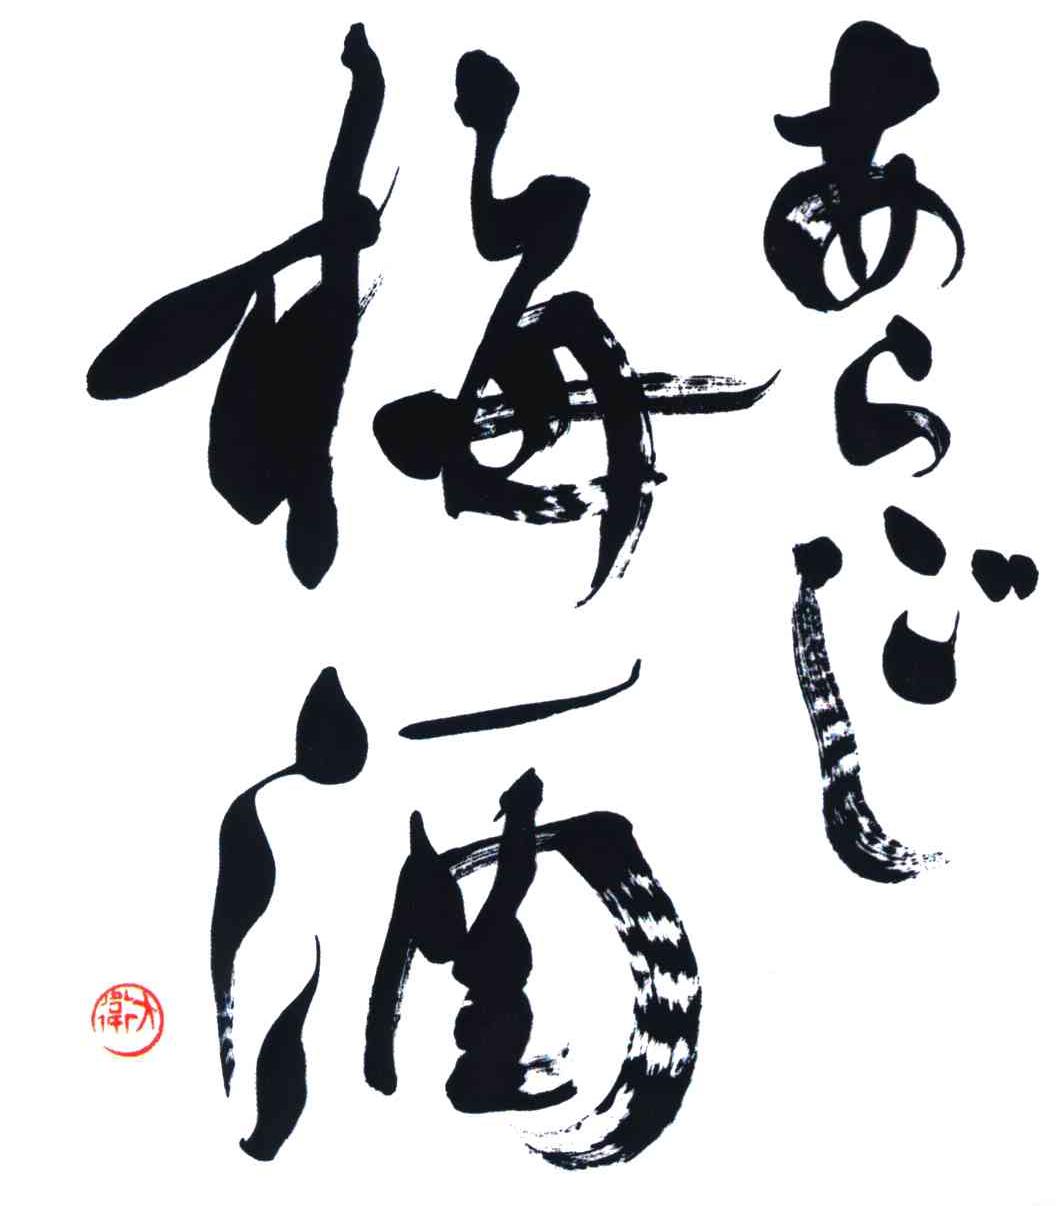 あらごし
梅酒